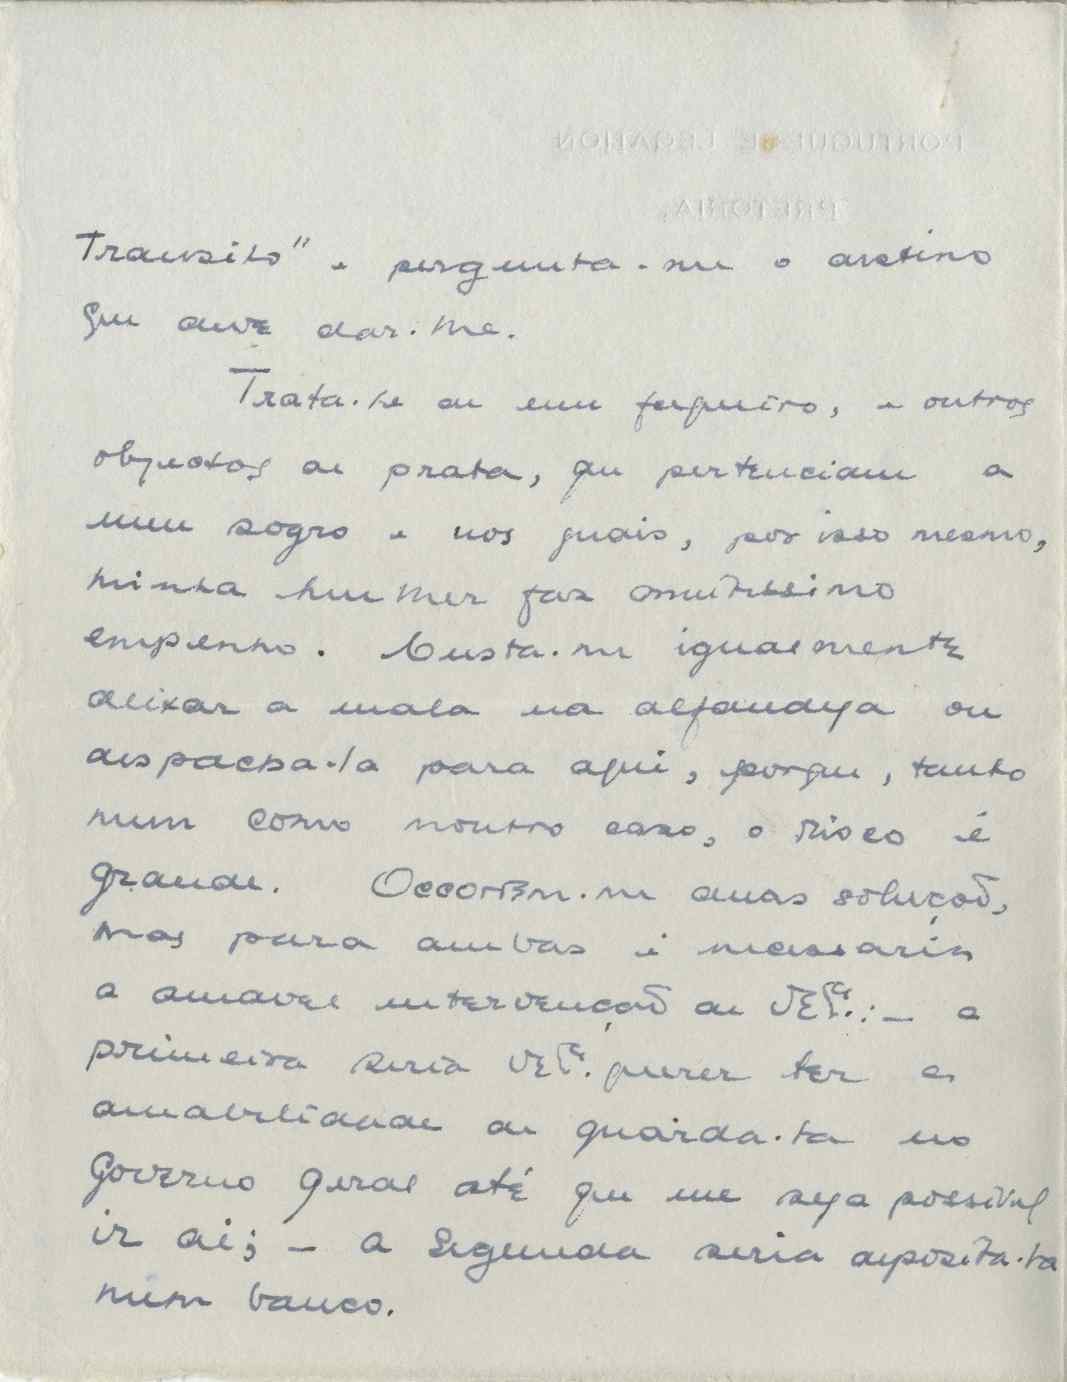 PORTUGUESE LEGATION
PRETORIA.
Transito" e pergunta-me o destino
que deve dar-me.
Trata-se de um faqueiro, e outros
objectos de prata, que pertenciam a
meu sogro e nos quais, por isso mesmo,
minha mulher faz muitissimo
empenho. Custa-me igualmente
deixar a mala na alfandega ou
despacha-la para aqui, porque, tanto
num como noutro caso, o risco é
grande. Occorrem-me duas soluções,
mas para ambas é necessaria
a amavel intervenção de V. Exª.: — a
primeira seria V. Exª. querer ter a
amabilidade de guarda-la no
Governo Geral até que me seja possivel
ir ai; — a segunda seria deposita-la
num banco.